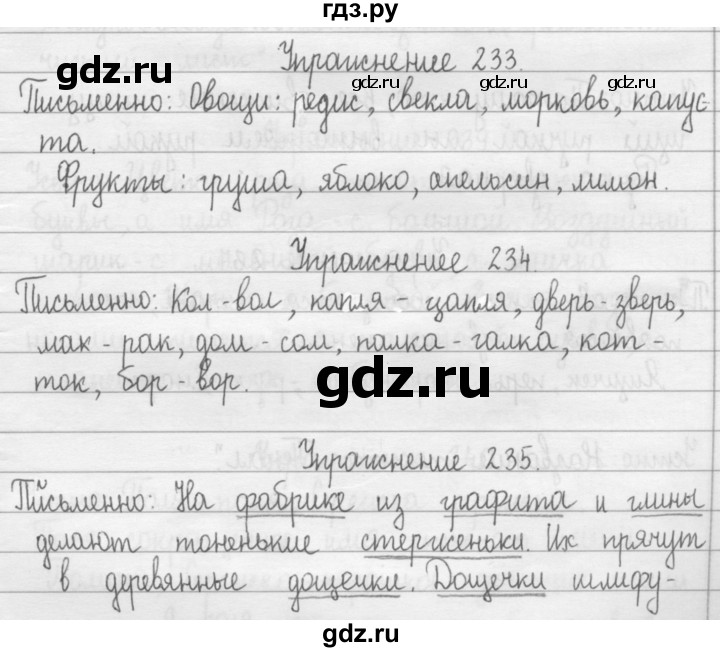 гдз.ру
Упражнение 233.
gdz.ru gdz.ru gdz.ru gdz.ru
Письменно: Овощи: редис, свекла, морковь, капус-
та.
Фрукты: груша, яблоко, апельсин, лимон.
Упражнение 234.
Письменно: Кол-вол, капля - цапля, дверь-зверь,
мак - рак, дом - сом, палка - галка, кот -
ток, бор - вор.
gdz.ru
Упражнение 235.
Письменно: На фабрике из графита и глины
делают тоненькие стерженьки. Их прячут
в деревянные дощечки. Дощечки шлифу-
gdz.ru